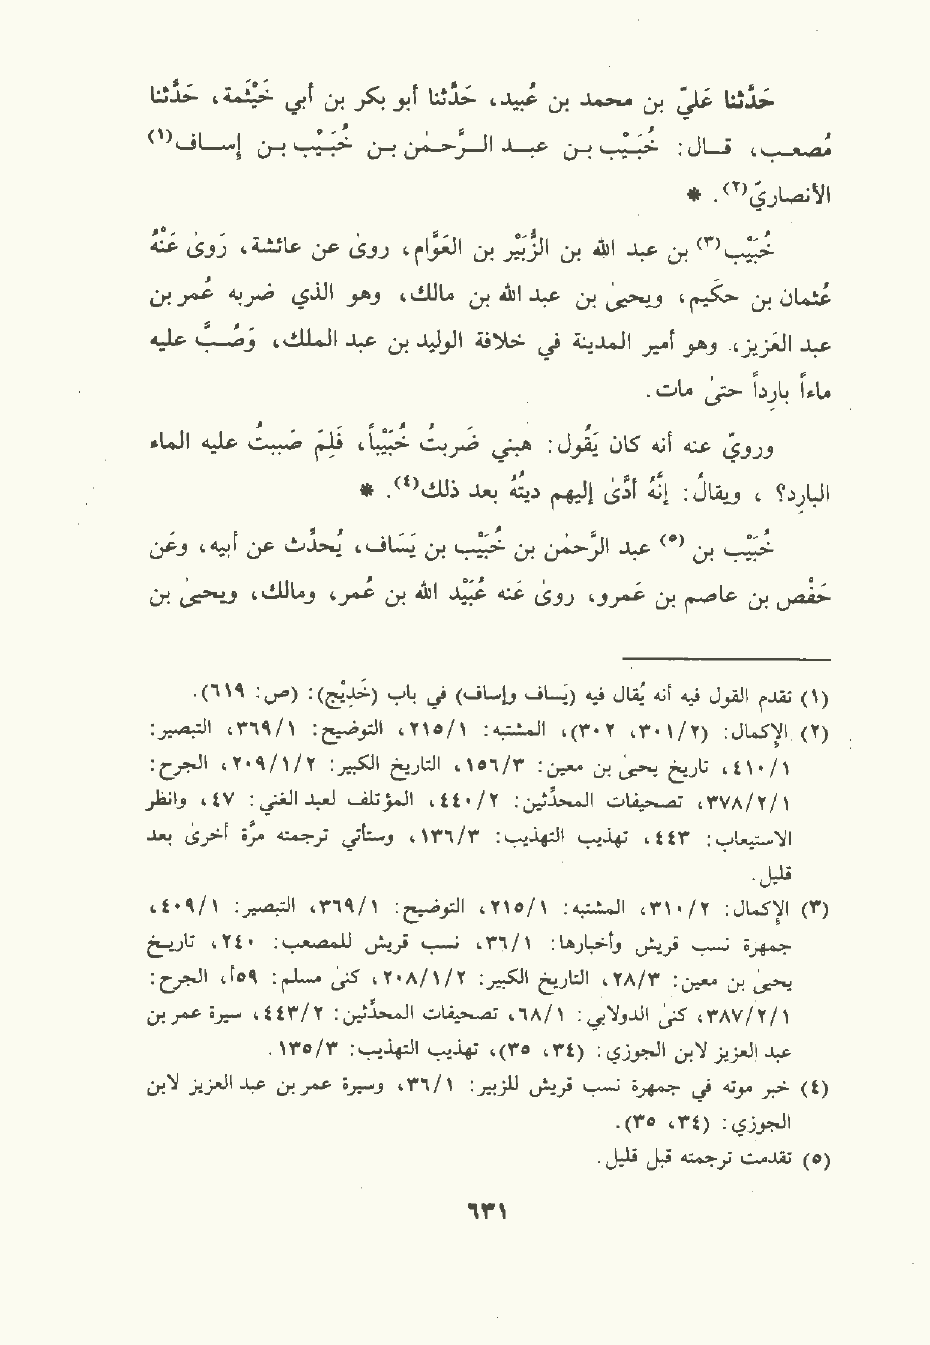 حَدَّثنا عَليّ بن محمد بن عُبيد، حَدَّثنا أبو بكر بن أبي خَيْثَمة، حَدَّثنا
مُصعب، قال: خُبَيْب بن عبد الرَّحمٰن بن خُبَيْب بن إساف(١)
الأنصاريّ(٢). *
خُبَيْب(٣) بن عبد الله بن الزُّبَيْر بن العَوَّام، روىٰ عن عائشة، رَوىٰ عَنْهُ
عُثمان بن حكيم، ويحيىٰ بن عبد الله بن مالك، وهو الذي ضربه عُمر بن
عبد العَزيز، وهو أمير المدينة في خلافة الوليد بن عبد الملك، وَصُبَّ عليه
ماءاً بارداً حتىٰ مات.
ورويَ عنه أنه كان يَقُول: هبني ضَربتُ خُبَيْباً، فَلِمَ صَببتُ عليه الماء
البارد؟ ، ويقالُ: إنَّهُ أدَّىٰ إليهم ديتَهُ بعد ذلك(٤). *
خُبَيْب بن (٥) عبد الرَّحمٰن بن خُبَيْب بن يَسَاف، يُحدِّث عن أبيه، وعَن
حَفْص بن عاصم بن عَمرو، روىٰ عَنه عُبَيْد الله بن عُمر، ومالك، ويحيىٰ بن
(١) تقدم القول فيه أنه يُقال فيه (يَساف وإساف) في باب (خَدِيْج): (ص: ٦١٩).
(٢) الإكمال: (٣٠١/٢، ٣٠٢)، المشتبه: ٢١٥/١، التوضيح: ٣٦٩/١، التبصير:
٤١٠/١، تاريخ يحيىٰ بن معين: ١٥٦/٣، التاريخ الكبير: ٢٠٩/١/٢، الجرح:
٣٧٨/٢/١، تصحيفات المحدِّثين: ٤٤٠/٢، المؤتلف لعبد الغني: ٤٧، وانظر
الإستيعاب: ٤٤٣، تهذيب التهذيب: ١٣٦/٣، وستأتي ترجمته مرَّة أخرىٰ بعد
قليل.
(٣) الإكمال: ٣١٠/٢، المشتبه: ٢١٥/١، التوضيح: ٣٦٩/١، التبصير: ٤٠٩/١،
جمهرة نسب قريش وأخبارها: ٣٦/١، نسب قريش للمصعب: ٢٤٠، تاريخ
يحيىٰ بن معين: ٢٨/٣، التاريخ الكبير: ٢٠٨/١/٢، كنىٰ مسلم: ٥٩أ، الجرح:
٣٨٧/٢/١، كنىٰ الدولابي: ٦٨/١، تصحيفات المحدِّثين: ٤٤٣/٢، سيرة عمر بن
عبد العزيز لابن الجوزي: (٣٤، ٣٥)، تهذيب التهذيب: ١٣٥/٣.
(٤) خبر موته في جمهرة نسب قريش للزبير: ٣٦/١، وسيرة عمر بن عبد العزيز لابن
الجوزي: (٣٤، ٣٥).
(٥) تقدمت ترجمته قبل قليل.
٦٣١